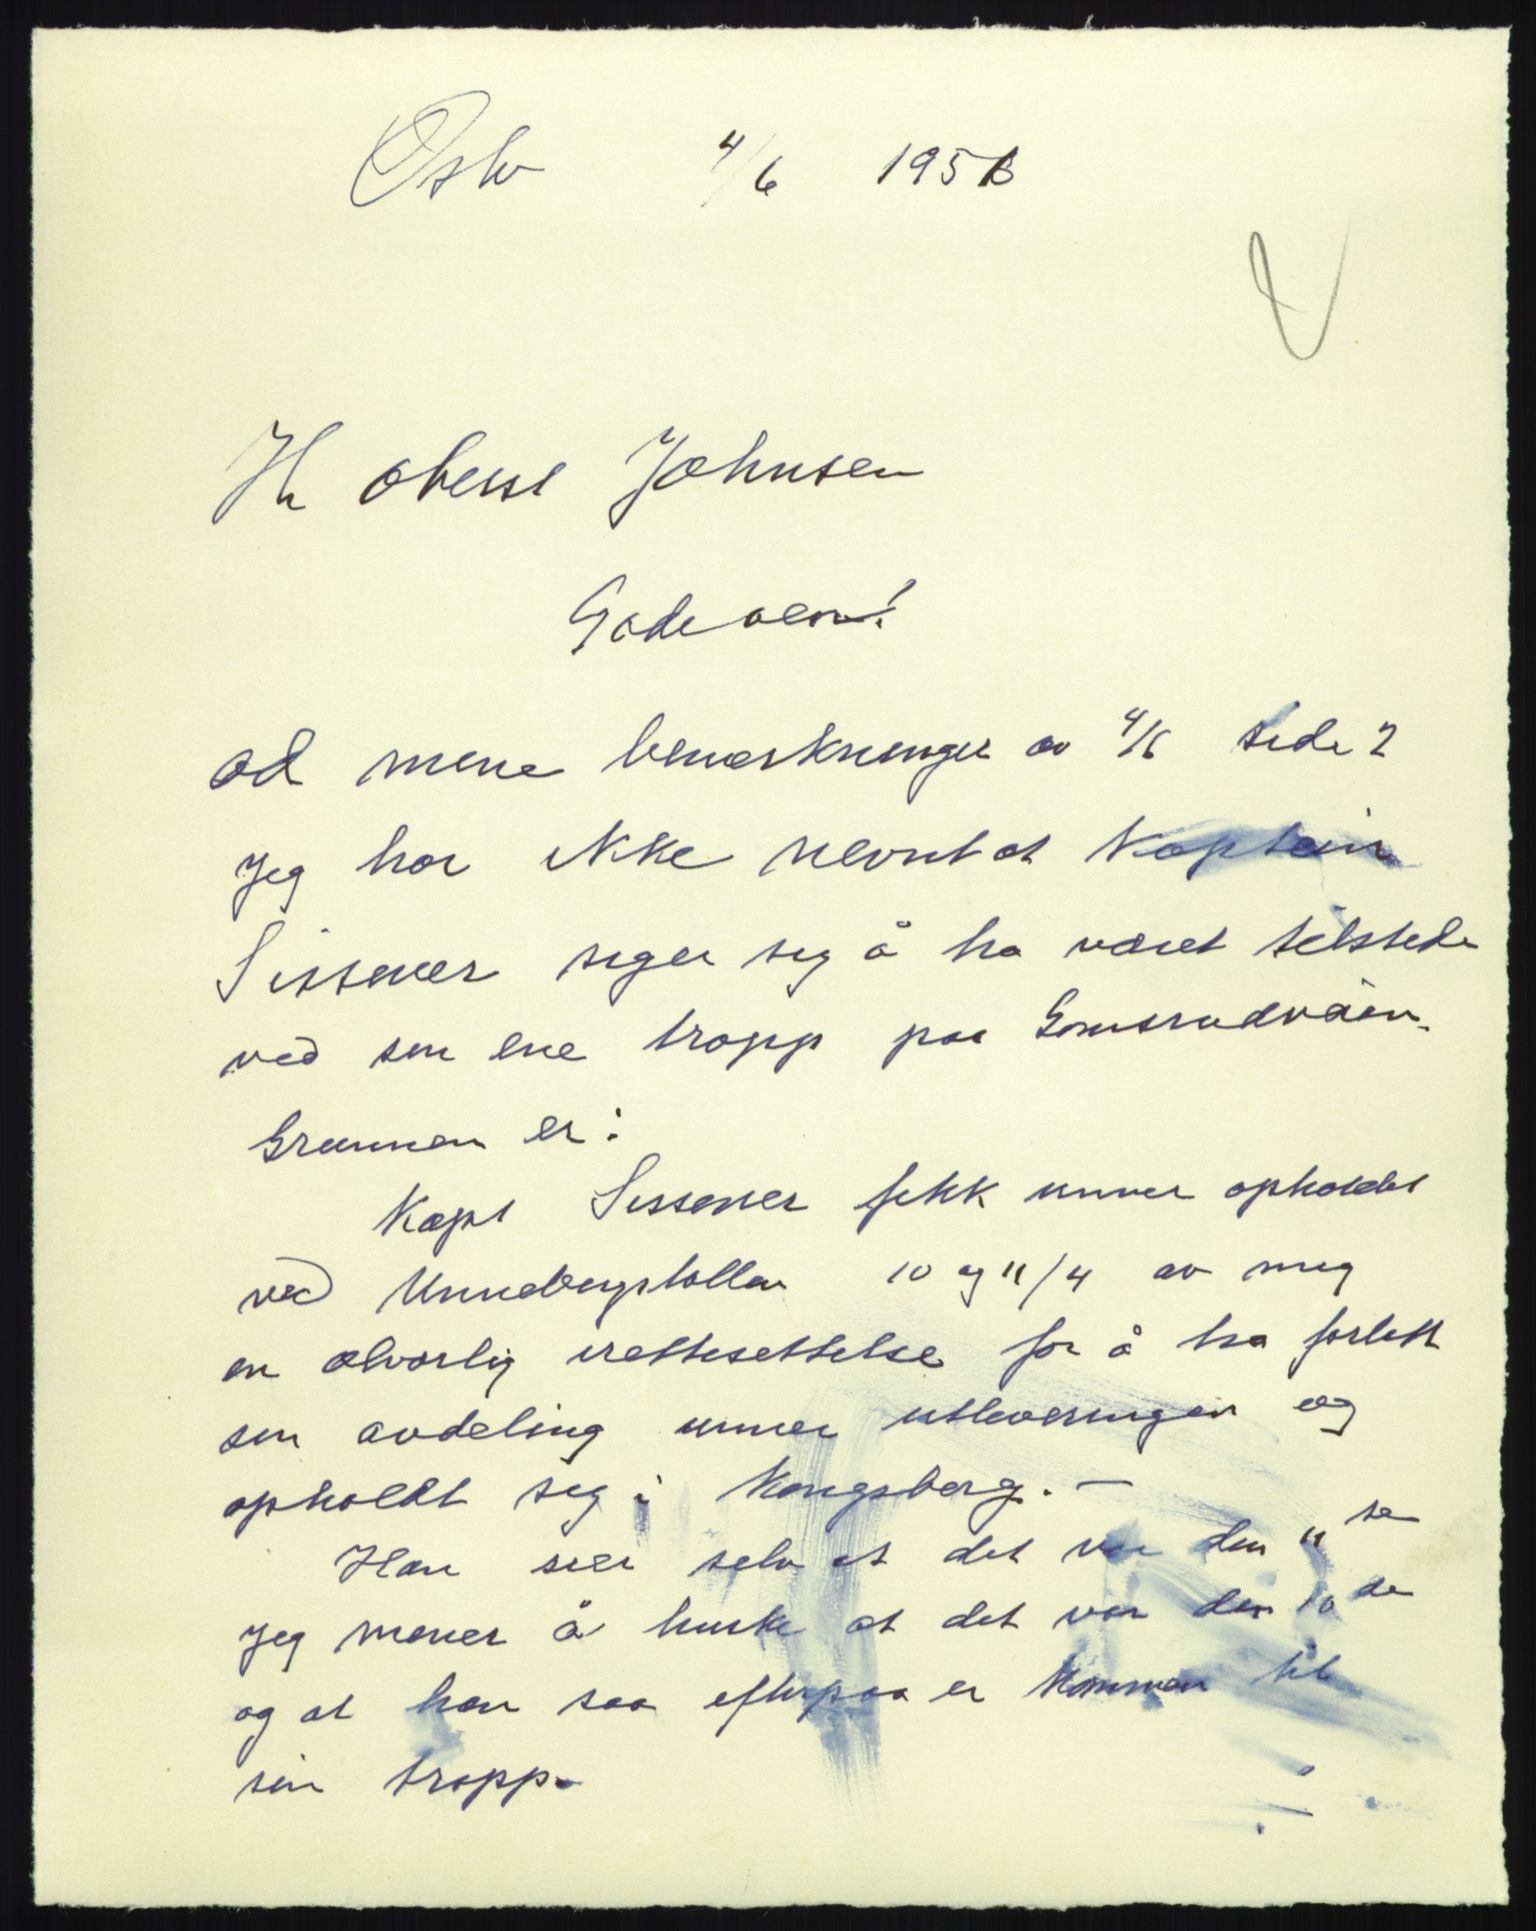 Oslo 4/6 195
Hr oberst Johnsen
Gode ven!
ad mine bemerkninger av 4/6 side 2
Jeg har ikke nevnt at Kaptein
Sissener siger seg å ha været tilstede
ved sin ene tropp paa Gomsrudveien.
Grunnen er:
Kapt Sissener fikk unner opholdet
ved Unnebergkollen 10 og 11/4 av meg
en alvorlig irettesettelse for å ha forlatt
sin avdeling unner utleveringen og
opholdt seg i Kongsberg. -
Han sier selv at det var den 11 te
Jeg mener å huske at det var den 10 de
og at han saa efterpaa er kommen til
sin tropp.